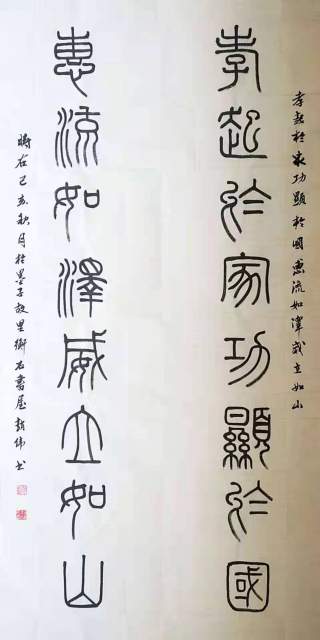 孝起於家功顯於國惠流如澤威立如山
孝起於家功顯於國
惠流如澤威立如山
時在己亥秋月於墨子故里衡石書屋趙偉書